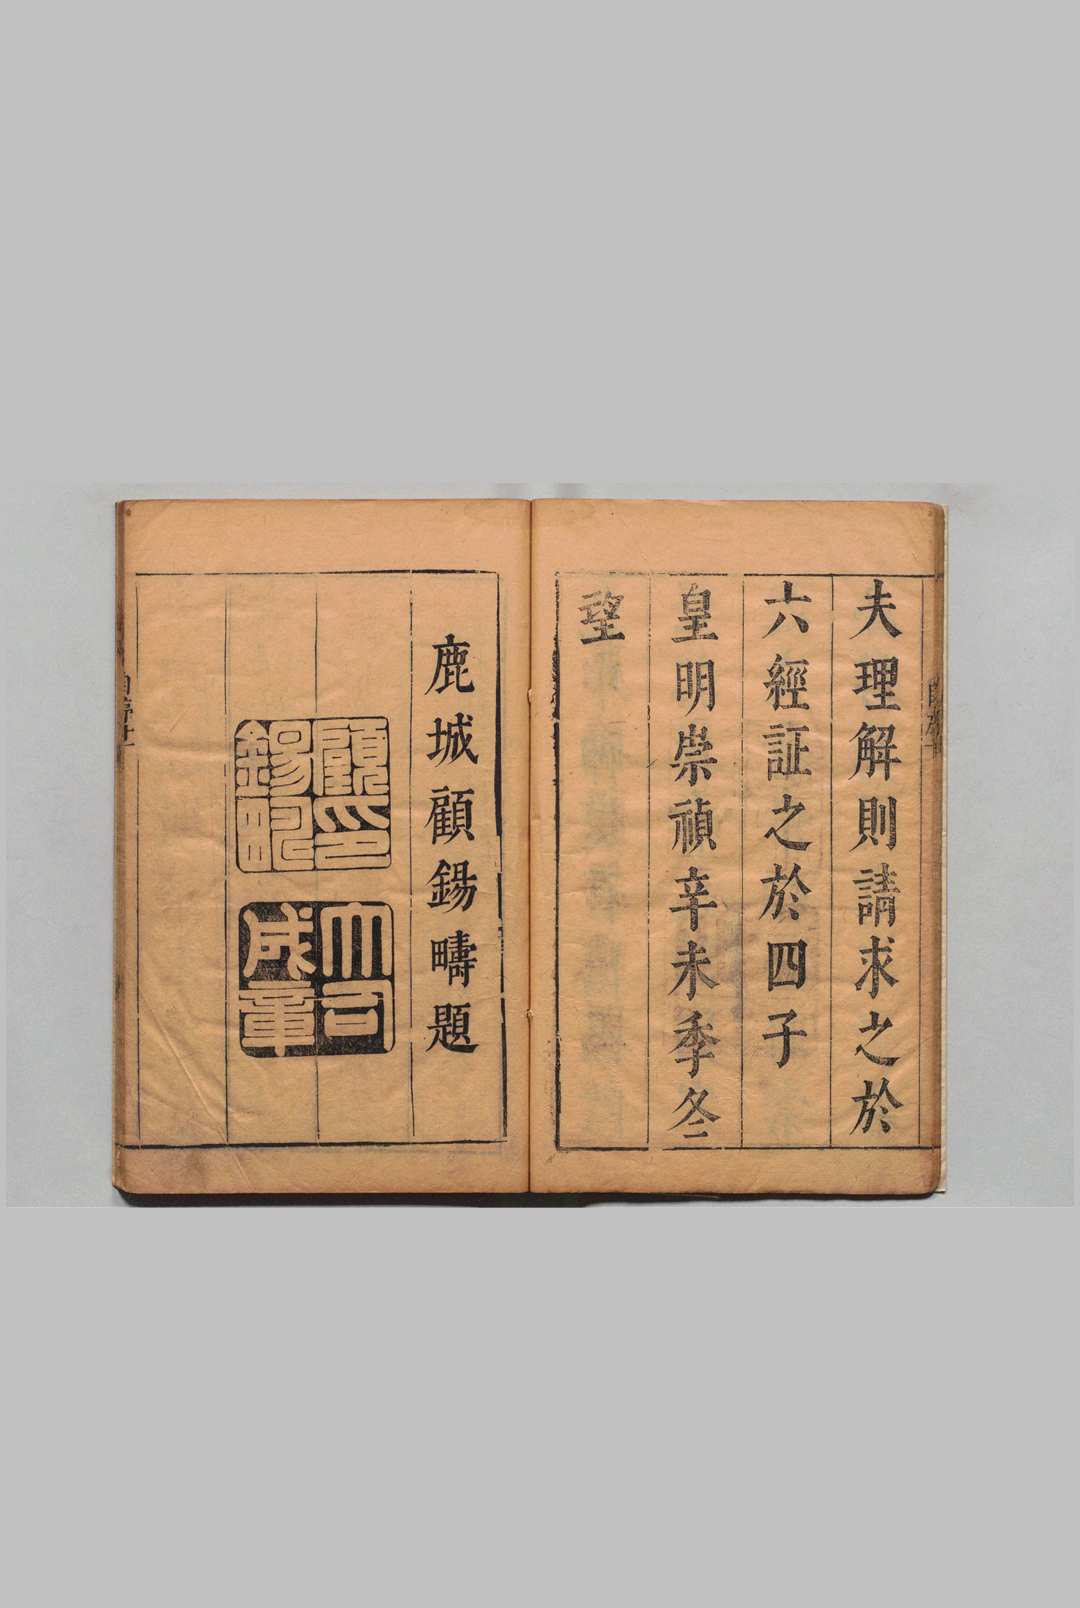 夫理解則請求之於
六經証之於四子
皇明崇禎辛未季冬二
望
鹿城顧錫疇題
顧印
錫疇
大司
成章